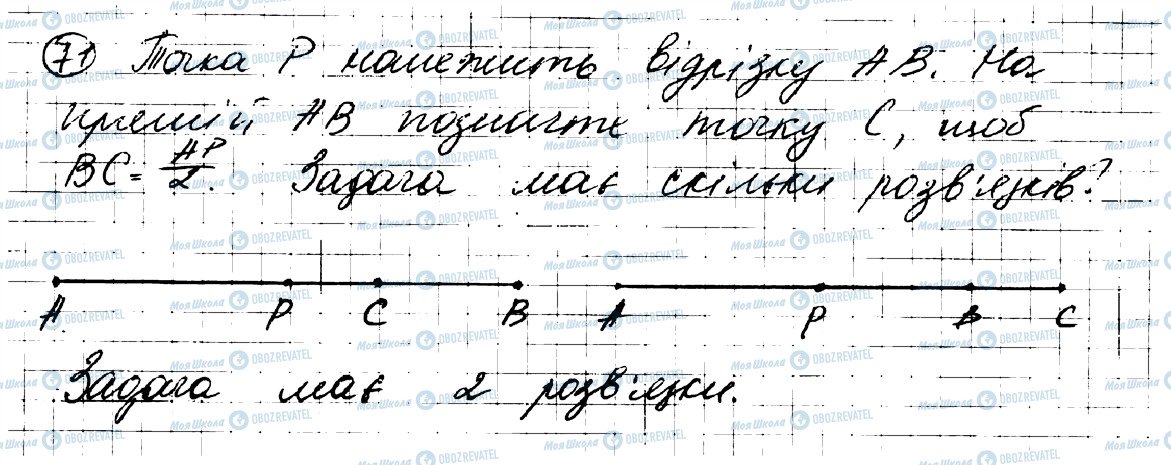 71 Точка P належить відрізку AB. На
прямій AB позначте точку C, щоб
BC = AP/2. Задача має скільки розв'язків?
A P C B A P B C
Задача має 2 розв'язки.
МояШкола OBOZREVATEL